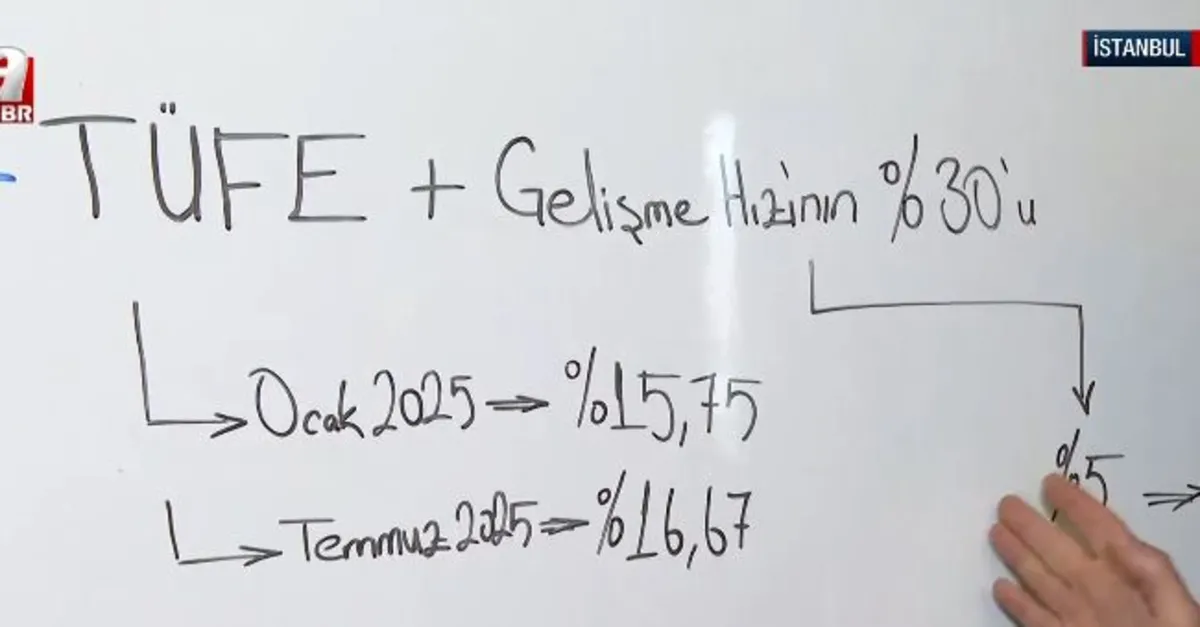 İSTANBUL
BR
TÜFE + Gelişme Hızı'nın %30'u
Ocak 2025 ⇒ %15,75
%5 ⇒
Temmuz 2025 ⇒ %16,67